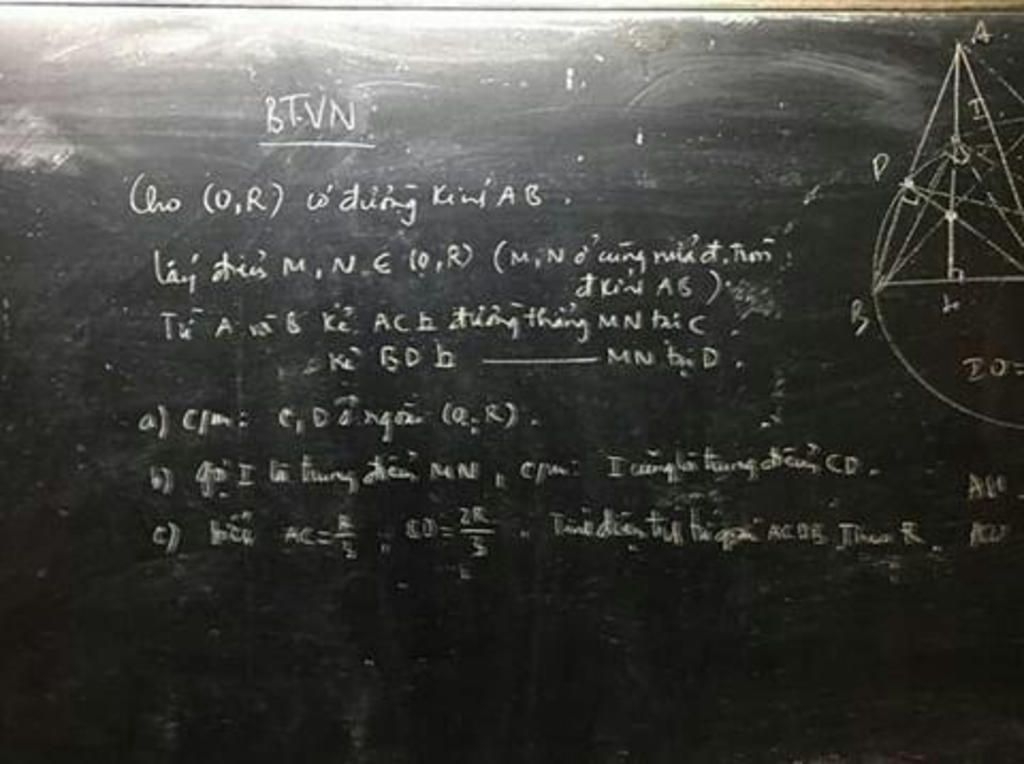 BTVN
Cho (O,R) có đường kính AB.
Lấy điểm M, N ∈ (O,R) (M,N ở cùng nửa đ. tròn
đ kính AB).
Từ A và B kẻ AC ⊥ đường thẳng MN tại C
kẻ BD ⊥ ——— MN tại D.
a) C/m: C, D ở ngoài (O,R).
b) gọi I là trung điểm MN, C/m: I cũng là trung điểm CD.
c) biết AC= , CD= . Tính diện tích tứ giác ACDB Theo R.
A
I
D
P
B
IO=